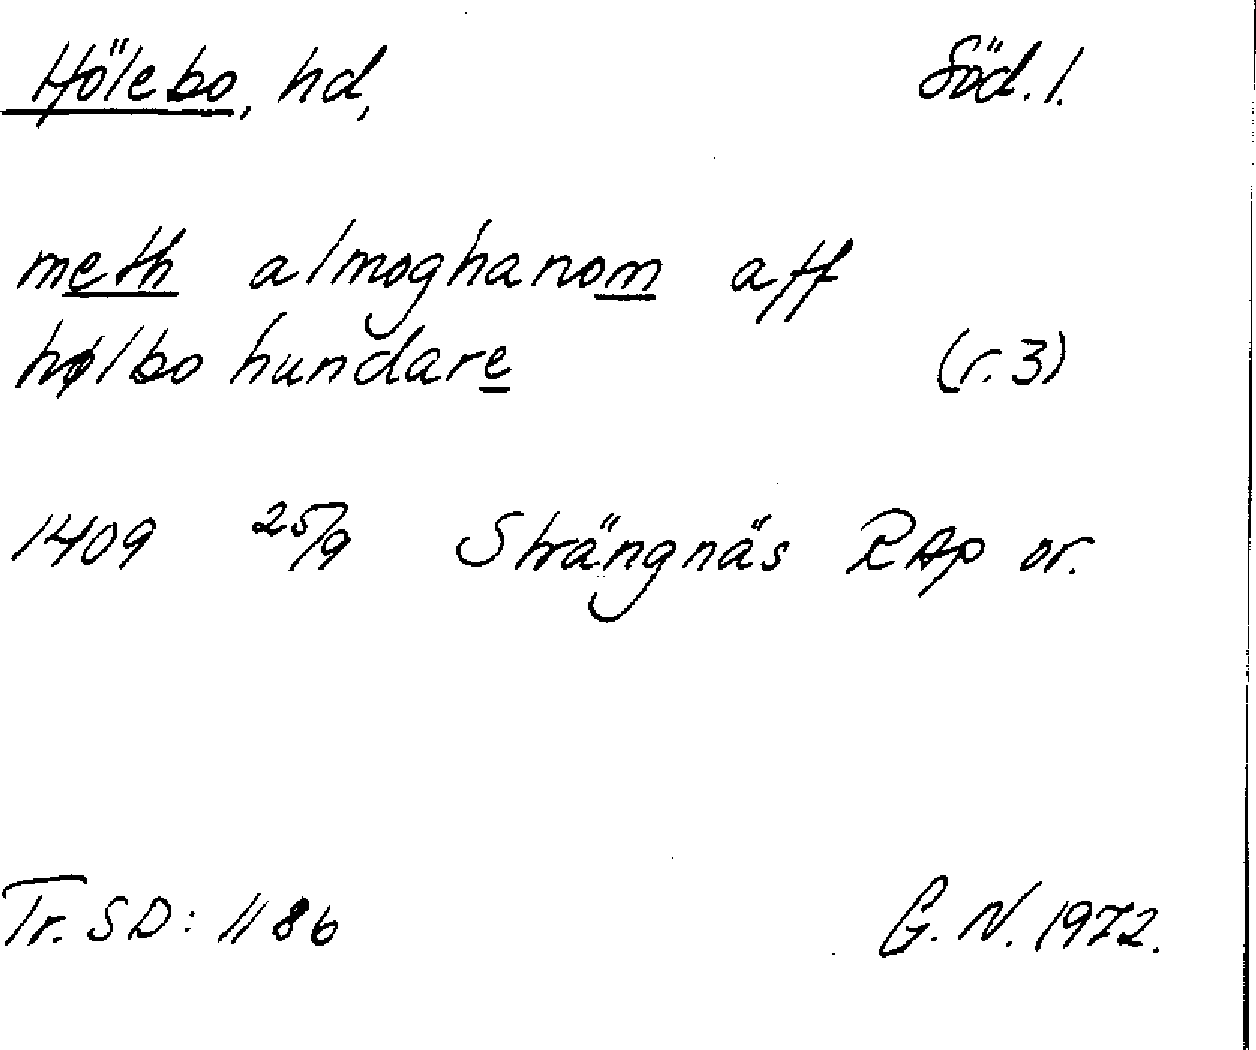 Hölebo, hd, Söd. l.
meth almoghanom aff
hølbo hundare (r. 3)
1409 25/9 Strängnäs RAp or.
Tr. SD: 1186 G. N. 1972.